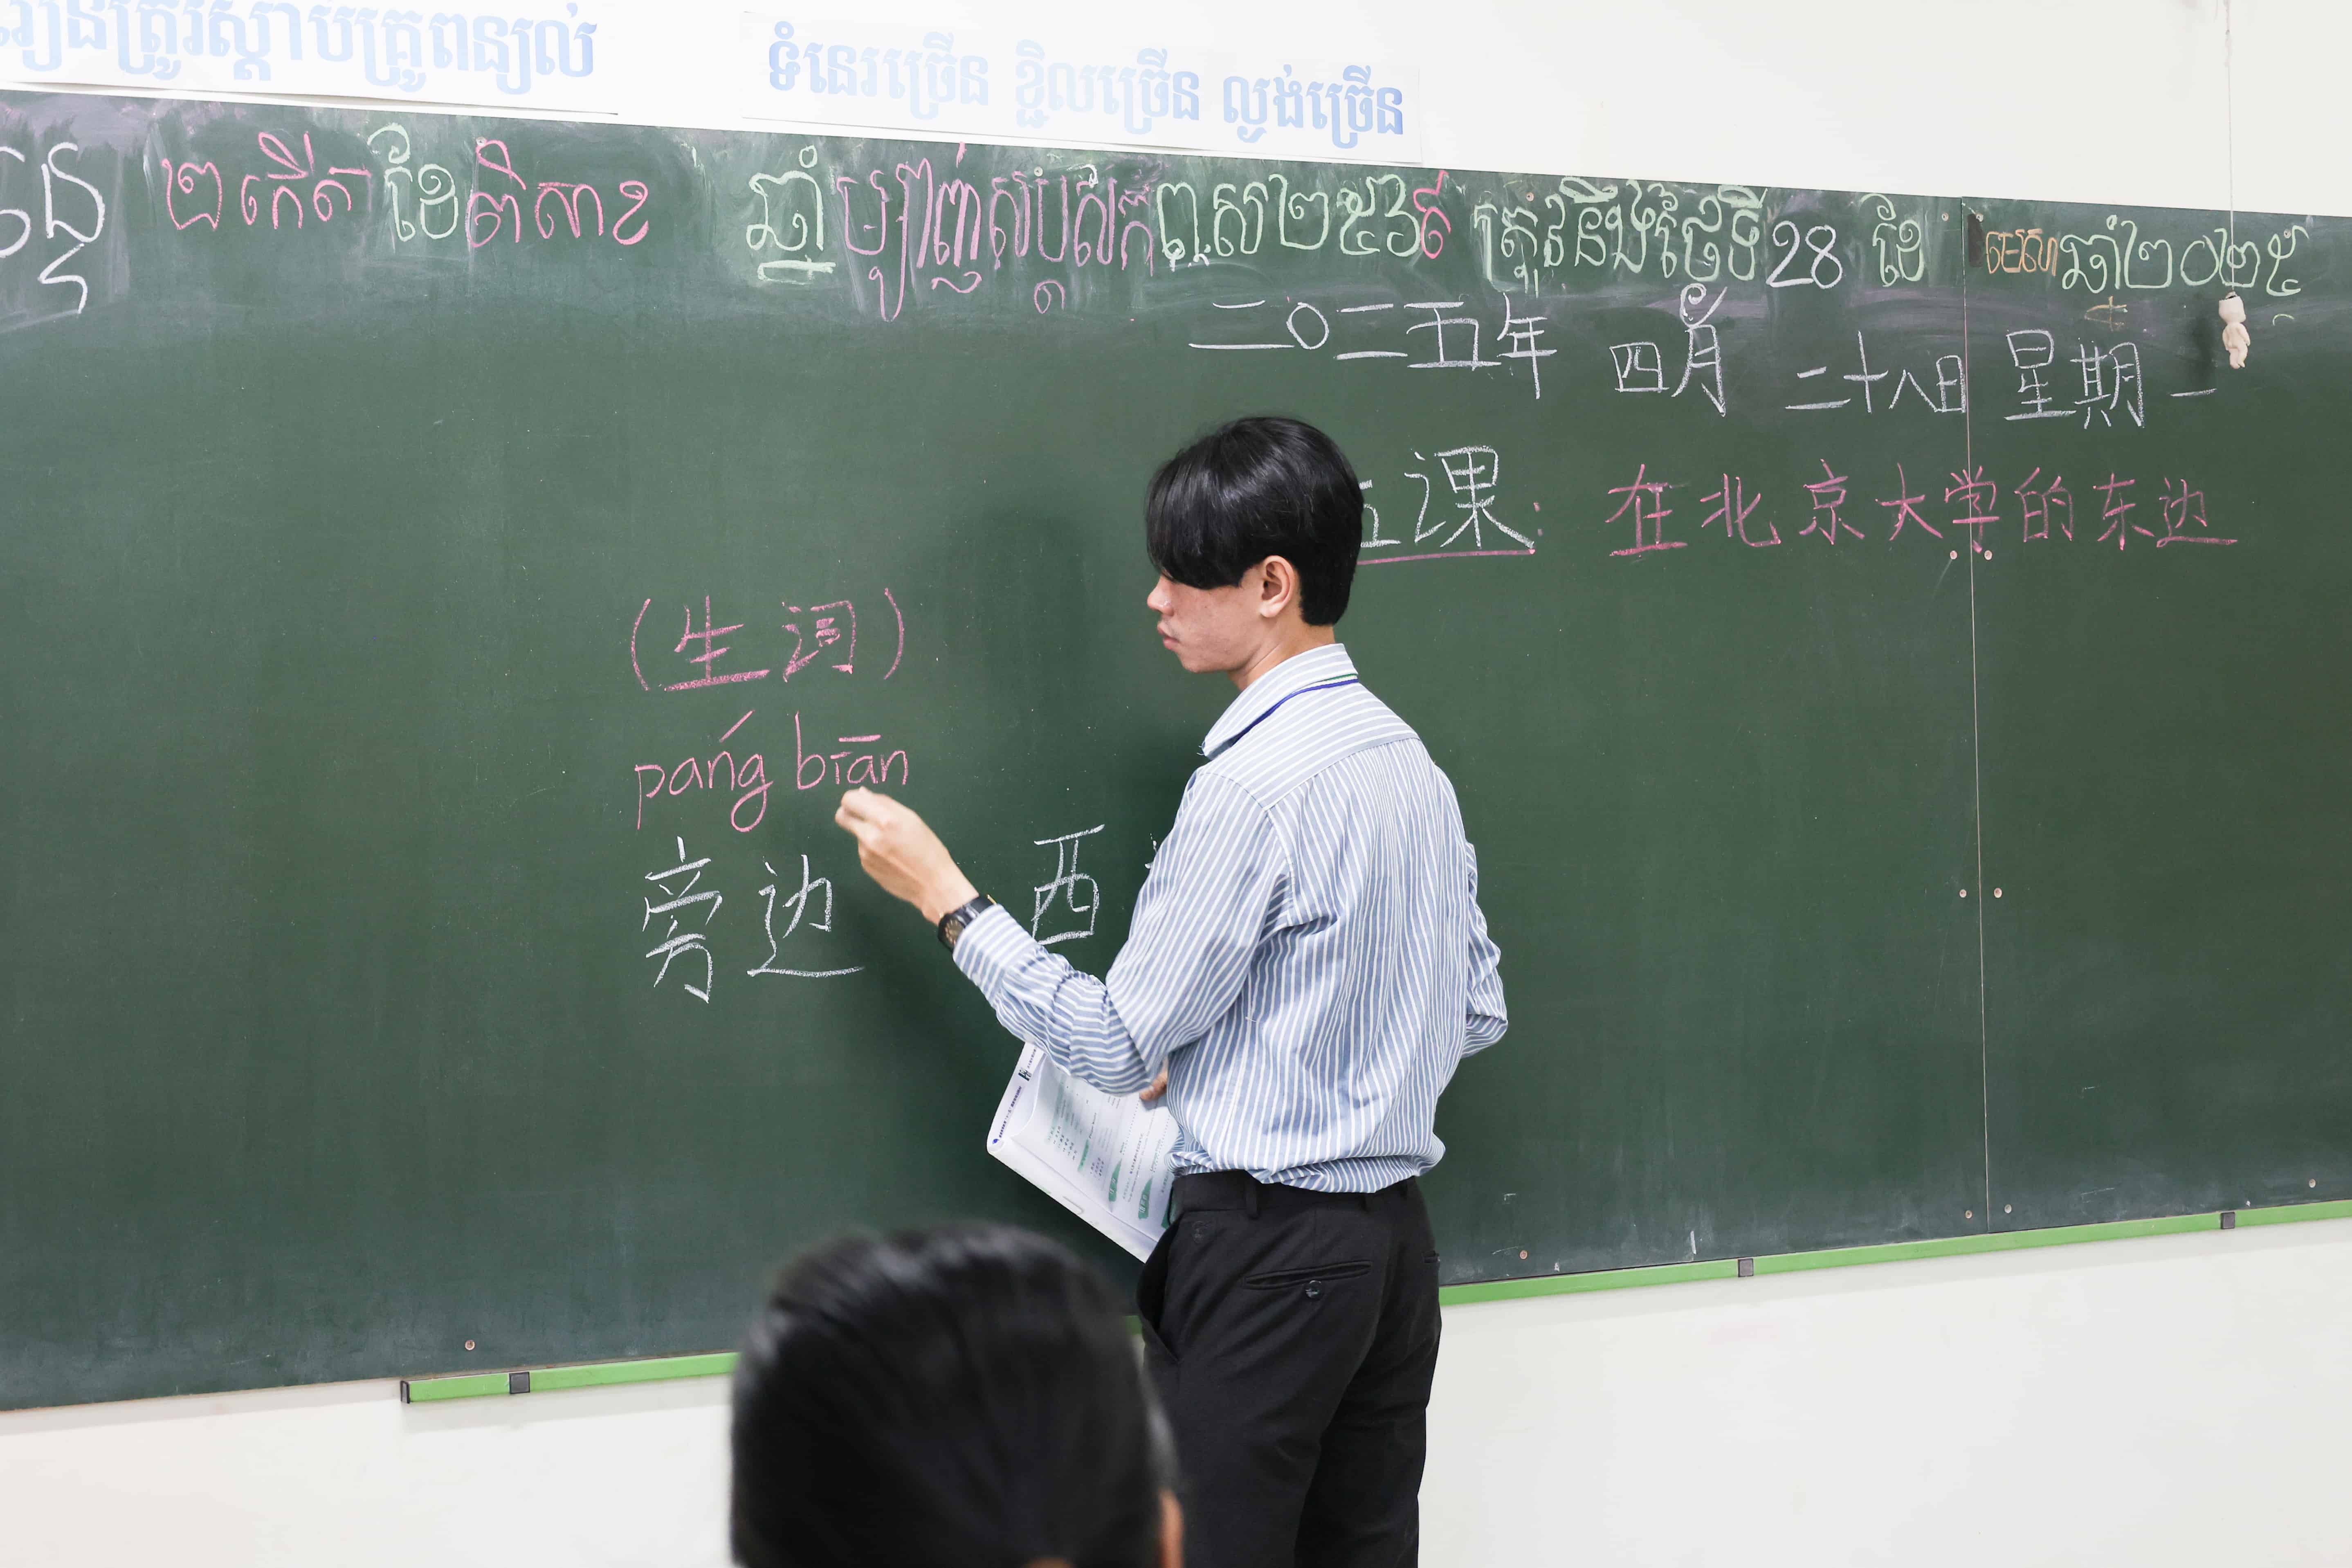 រៀនត្រូវស្តាប់គ្រូពន្យល់
ទំនេរច្រើន ខ្ជិលច្រើន ល្ងង់ច្រើន
២កើត ខែពិសាខ ឆ្នាំម្សាញ់សប្តស័ក ព.ស២៥៦៩ ត្រូវនឹងថ្ងៃទី28 ខែ មេសា ឆ្នាំ២០២៥
二〇二五年 四月 二十八日 星期一
课: 在北京大学的东边
(生词)
pańg biān
旁边 西